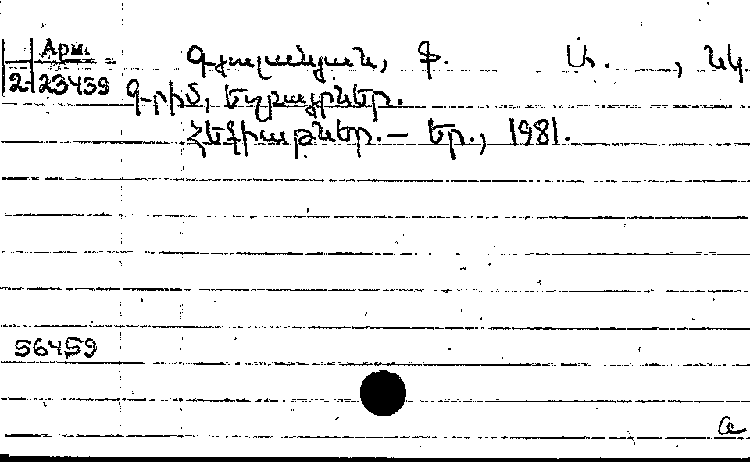 Арм. Գյուլանյան, Ֆ. Ս. , նկ.
2-23439
Գրիմ, եղբայրներ.
Հեքիաթներ. — Եր., 1981.
56459
а